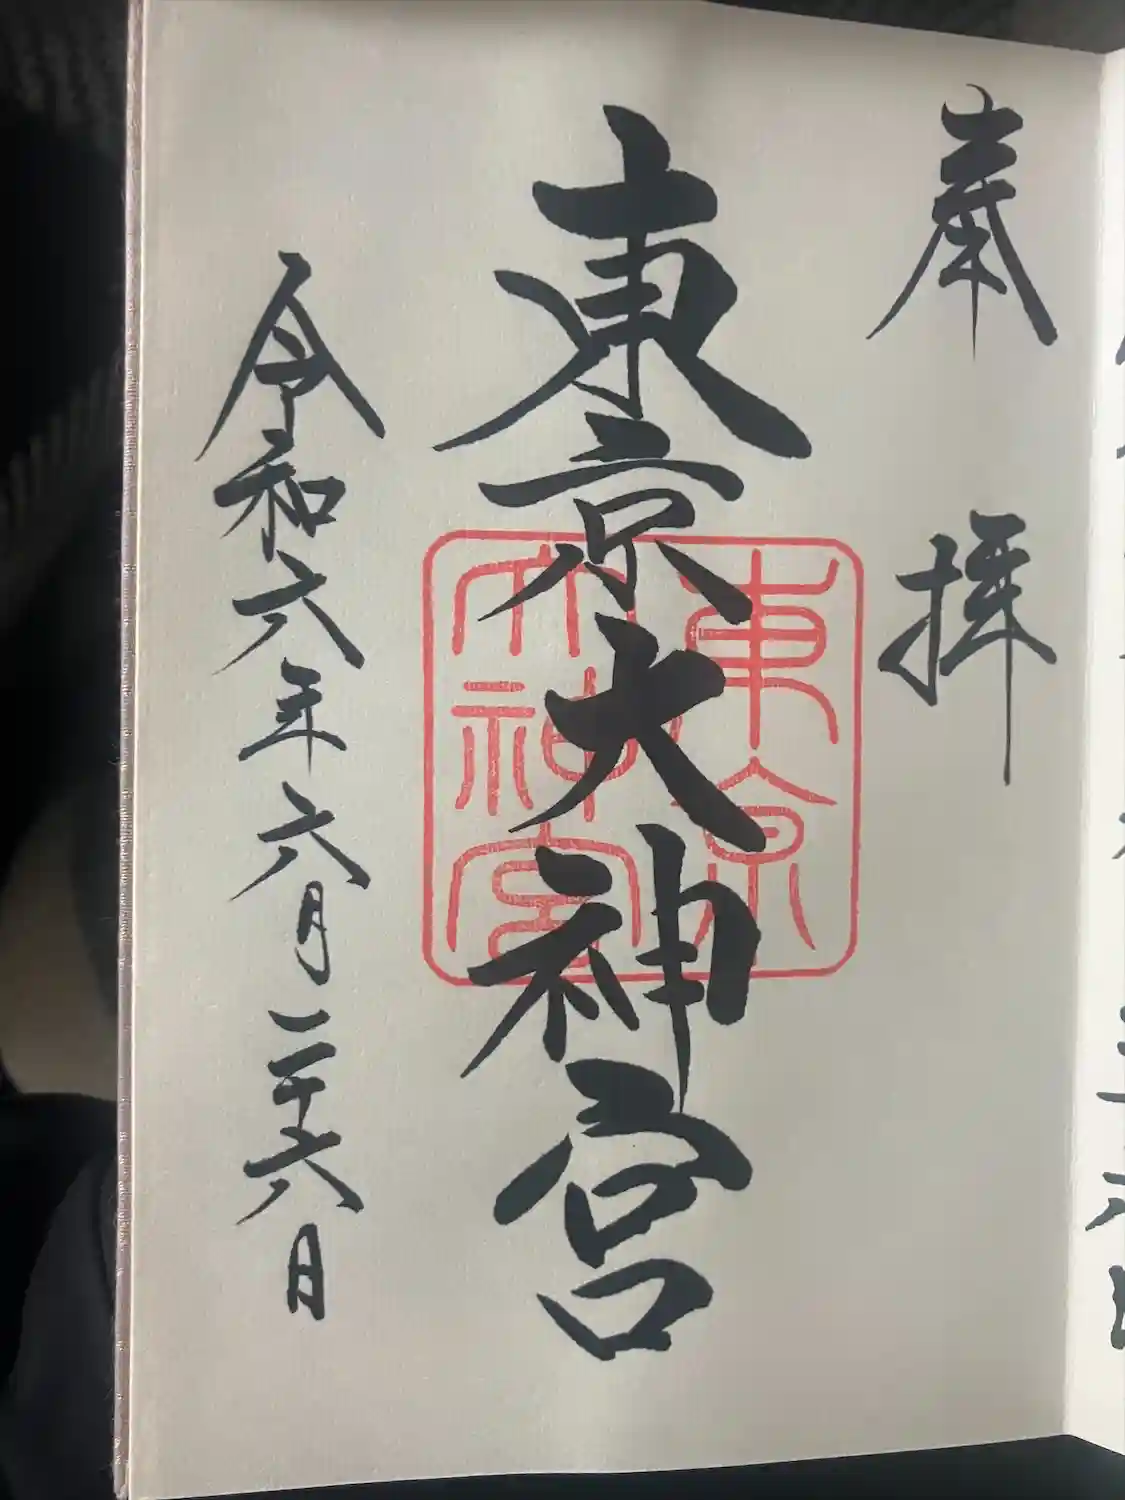 奉拝
東京大神宮
東京
大神宮
令和六年六月二十六日